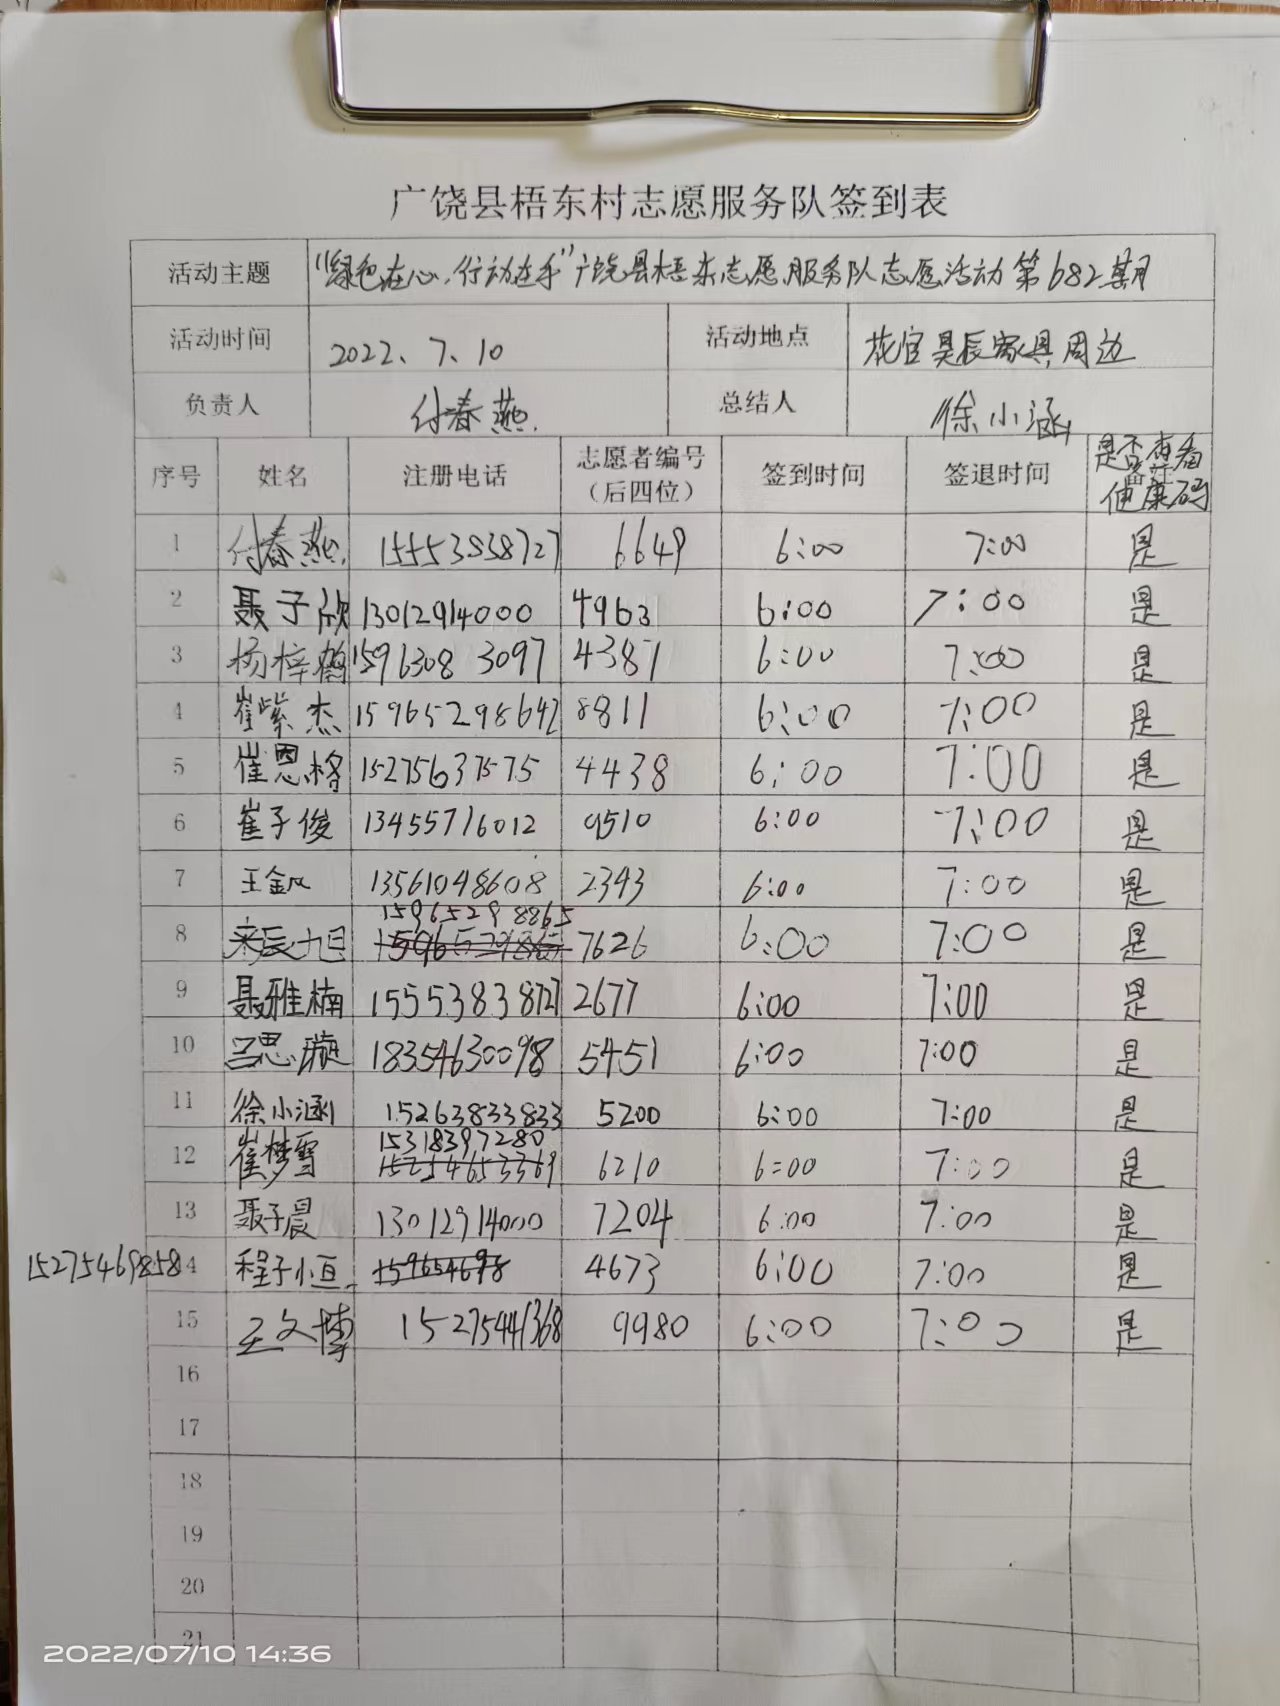 广饶县梧东村志愿服务队签到表
活动主题 “绿色在心,行动在手”广饶县梧东志愿服务队志愿活动第682期
活动时间 2022、7、10 活动地点 花官昊辰家具周边
负责人 付春燕 总结人 徐小涵
序号 姓名 注册电话 志愿者编号(后四位) 签到时间 签退时间 是否查看健康码
1 付春燕 15553838727 6649 6:00 7:00 是
2 聂子欣 13012914000 4963 6:00 7:00 是
3 杨梓鹤 15963083097 4387 6:00 7:00 是
4 崔紫杰 15965298642 8811 6:00 7:00 是
5 崔恩格 15275637575 4438 6:00 7:00 是
6 崔子俊 13455716012 9510 6:00 7:00 是
7 王金凤 13561048608 2343 6:00 7:00 是
15965298865
8 来辰旭 7626 6:00 7:00 是
9 聂雅楠 15553838727 2677 6:00 7:00 是
10 吕思璇 18354630098 5451 6:00 7:00 是
11 徐小涵 15263833833 5200 6:00 7:00 是
15318397280
12 崔梦雪 15254653369 6210 6:00 7:00 是
13 聂子晨 13012914000 7204 6:00 7:00 是
15275469858 14 程子恒 159654698 4673 6:00 7:00 是
15 王文博 15275441368 9980 6:00 7:00 是
16
17
18
19
20
21
2022/07/10 14:36